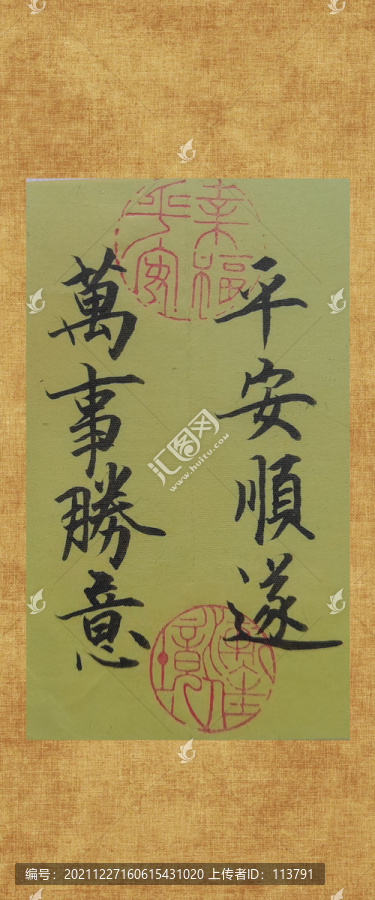 平安順遂
萬事勝意
幸福
平安
汇图网
www.huitu.com
编号：20211227160615431020 上传者ID：113791